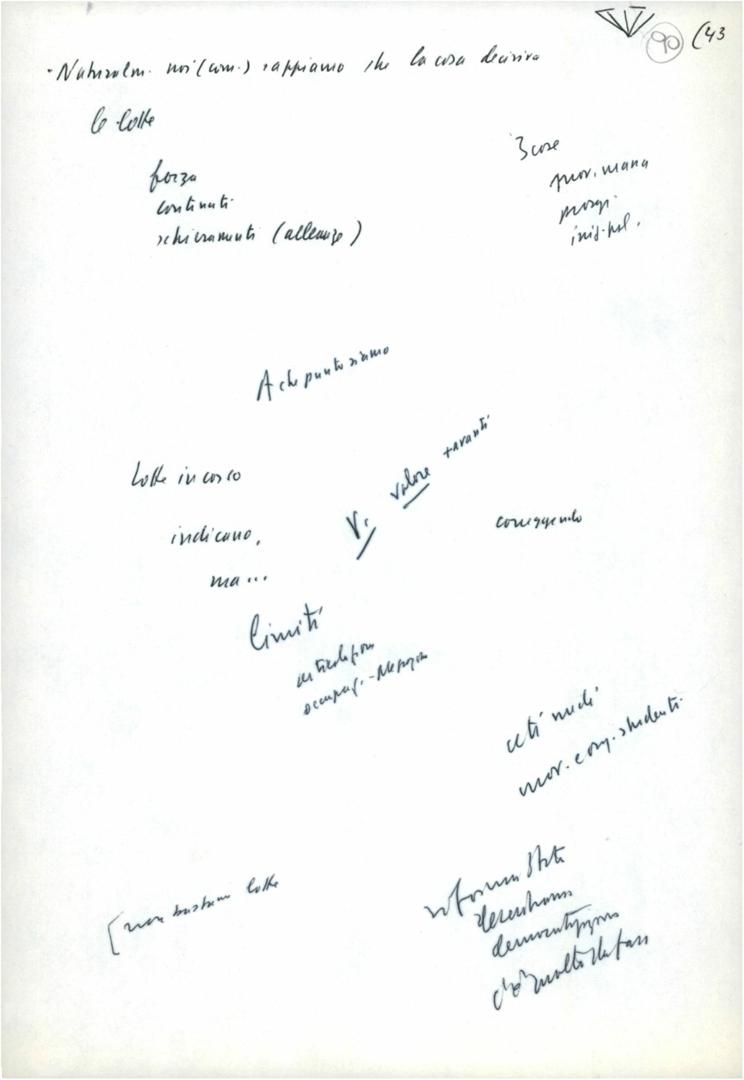 90 (43
- Naturalm. noi (com.) sappiamo che la cosa decisiva
le lotte
forza
continuti
schieramenti (alleanze)
3 cose
mov. massa
prosp.
iniz. pol.
A che punto siamo
Lotte in corso
indicano,
ma...
V.
valore + avanti
correggendo
limiti
articolazioni
occupaz. - Mezzog
ceti medi
mov. e org. studenti
[non bastano lotte
riforma Stato
decentram
democratizzazione
c'è molto da fare